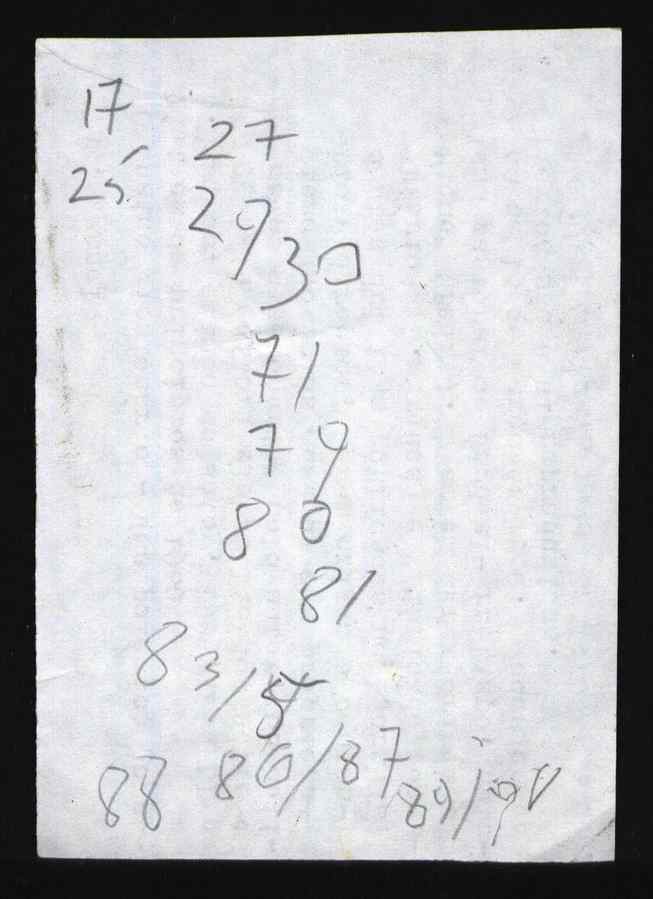 17
27
25
29
30
71
79
80
81
83/5
86/87
88
89/90